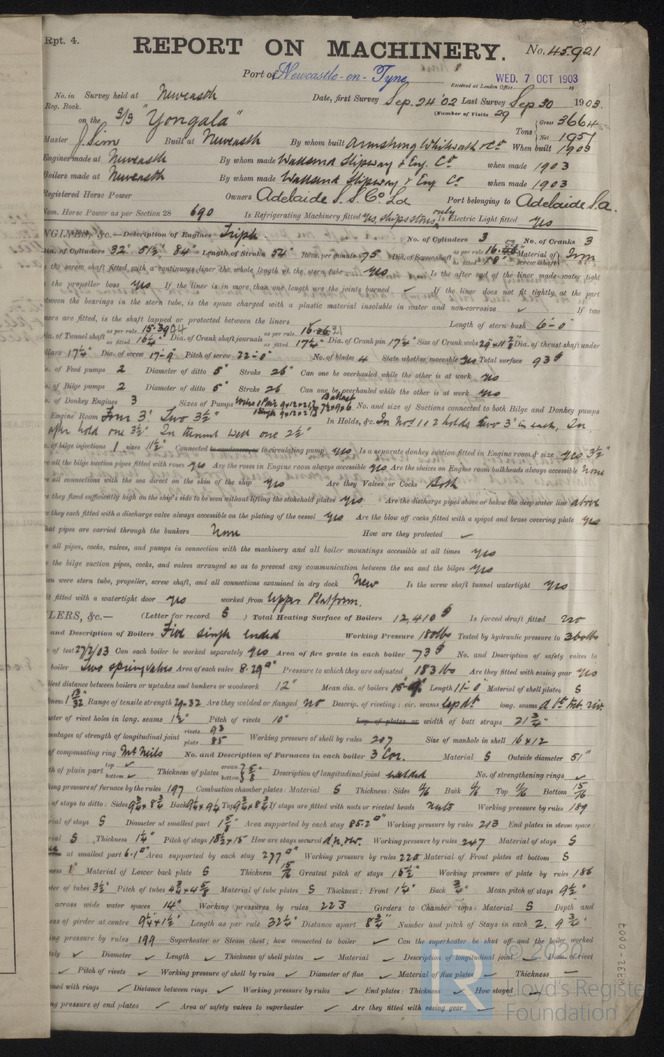 Rpt. 4.
REPORT ON MACHINERY.
No. 45921
Port of Newcastle-on-Tyne
WED. 7 OCT 1903
Received at London Office
No. in Survey held at Newcastle
Date, first Survey Sep. 24 '02 Last Survey Sep 30 1903
Reg. Book.
(Number of Visits 29
on the S/S "Yongala"
Tons Gross 3664
Net 1951
Master J. Sim Built at Newcastle By whom built Armstrong Whitworth & Co When built 1903
Engines made at Newcastle By whom made Wallsend Slipway & Eng. Co when made 1903
Boilers made at Newcastle By whom made Wallsend Slipway & Eng Co when made 1903
Registered Horse Power Owners Adelaide S.S. Co Ld Port belonging to Adelaide S.a.
Nom. Horse Power as per Section 28 690 Is Refrigerating Machinery fitted Yes, ships stores only Is Electric Light fitted yes
NGINES, &c.—Description of Engines Triple No. of Cylinders 3 No. of Cranks 3
of Cylinders 32" 51½" 84" Length of Stroke 54" Revs. per minute 75 Dia. of Screw shaft as per rule
the screw shaft fitted with a continuous liner the whole length of the stern tube yes Is the after end of the liner made water tight
the propeller boss yes If the liner is in more than one length are the joints burned If the liner does not fit tightly at the part
between the bearings in the stern tube, is the space charged with a plastic material insoluble in water and non-corrosive If two
liners are fitted, is the shaft lapped or protected between the liners Length of stern bush 6'-0"
of Tunnel shaft as per rule as fitted 16¼" Dia. of Crank shaft journals as per rule as fitted 17¼" Dia. of Crank pin 17¼" Size of Crank webs Dia. of thrust shaft under
collars 17¼" Dia. of screw 17-9" Pitch of screw 22-0" No. of blades 4 State whether moveable yes Total surface 93
of Feed pumps 2 Diameter of ditto 5" Stroke 26 Can one be overhauled while the other is at work yes
of Bilge pumps 2 Diameter of ditto 5" Stroke 26 Can one be overhauled while the other is at work yes
of Donkey Engines 3 Sizes of Pumps No. and size of Suctions connected to both Bilge and Donkey pumps
Engine Room Four 3" Two 3½" In Holds, &c. In Nos 1 & 2 holds two 3" in each. In
after hold one 3½" In tunnel well one 2½"
of bilge injections 1 sizes 11½" Connected to circulating pump yes Is a separate donkey suction fitted in Engine room & size yes 3½"
all the bilge suction pipes fitted with roses yes Are the roses in Engine room always accessible yes Are the sluices on Engine room bulkheads always accessible none
all connections with the sea direct on the skin of the ship yes Are they Valves or Cocks Both
they fixed sufficiently high on the ship's side to be seen without lifting the stokehold plates yes Are the discharge pipes above or below the deep water line above
they each fitted with a discharge valve always accessible on the plating of the vessel yes Are the blow off cocks fitted with a spigot and brass covering plate yes
What pipes are carried through the bunkers None How are they protected
all pipes, cocks, valves, and pumps in connection with the machinery and all boiler mountings accessible at all times yes
the bilge suction pipes, cocks, and valves arranged so as to prevent any communication between the sea and the bilges yes
were stern tube, propeller, screw shaft, and all connections examined in dry dock New Is the screw shaft tunnel watertight yes
fitted with a watertight door yes worked from Upper Platform.
LERS, &c.— (Letter for record S) Total Heating Surface of Boilers 12,410 Is forced draft fitted no
and Description of Boilers Five single ended Working Pressure 180lbs Tested by hydraulic pressure to 360lbs
of test 27/2/03 Can each boiler be worked separately yes Area of fire grate in each boiler 73 No. and Description of safety valves to
boiler Two spring valves Area of each valve 8.29" Pressure to which they are adjusted 183 lbs Are they fitted with easing gear yes
distance between boilers or uptakes and bunkers or woodwork 12" Mean dia. of boilers Length 11-0" Material of shell plates S
Range of tensile strength 29-32 Are they welded or flanged no Descrip. of riveting: cir. seams lap dl long. seams
of rivet holes in long. seams Pitch of rivets 10" Lap of plates or width of butt straps 21¾"
percentages of strength of longitudinal joint rivets 93 plate 85 Working pressure of shell by rules 207 Size of manhole in shell 16 x 12
of compensating ring No. and Description of Furnaces in each boiler 3 Cor. Material S Outside diameter 51"
of plain part top bottom Thickness of plates crown bottom Description of longitudinal joint welded No. of strengthening rings
pressure of furnace by the rules 197 Combustion chamber plates: Material S Thickness: Sides Back Top Bottom
of stays to ditto: Sides Back Top If stays are fitted with nuts or riveted heads nuts Working pressure by rules 189
of stays S Diameter at smallest part Area supported by each stay 85.2" Working pressure by rules 213 End plates in steam space:
S Thickness 1¼" Pitch of stays How are stays secured Working pressure by rules 247 Material of stays S
at smallest part 6.1" Area supported by each stay 277 Working pressure by rules 220 Material of Front plates at bottom S
1" Material of Lower back plate S Thickness Greatest pitch of stays Working pressure of plate by rules 186
of tubes 3½" Pitch of tubes Material of tube plates S Thickness: Front Back ¾" Mean pitch of stays 9½"
across wide water spaces 14" Working pressures by rules 223 Girders to Chamber tops: Material S Depth and
of girder at centre Length as per rule 32¼" Distance apart 8¾" Number and pitch of Stays in each 2.
pressure by rules 199 Superheater or Steam chest; how connected to boiler Can the superheater be shut off and the boiler worked
Diameter Length Thickness of shell plates Material Description of longitudinal joint
Pitch of rivets Working pressure of shell by rules Diameter of flue Material of flue plates Thickness
with rings Distance between rings Working pressure by rules End plates: Thickness How stayed
pressure of end plates Area of safety valves to superheater Are they fitted with easing gear
© 2020
Lloyd's Register
Foundation